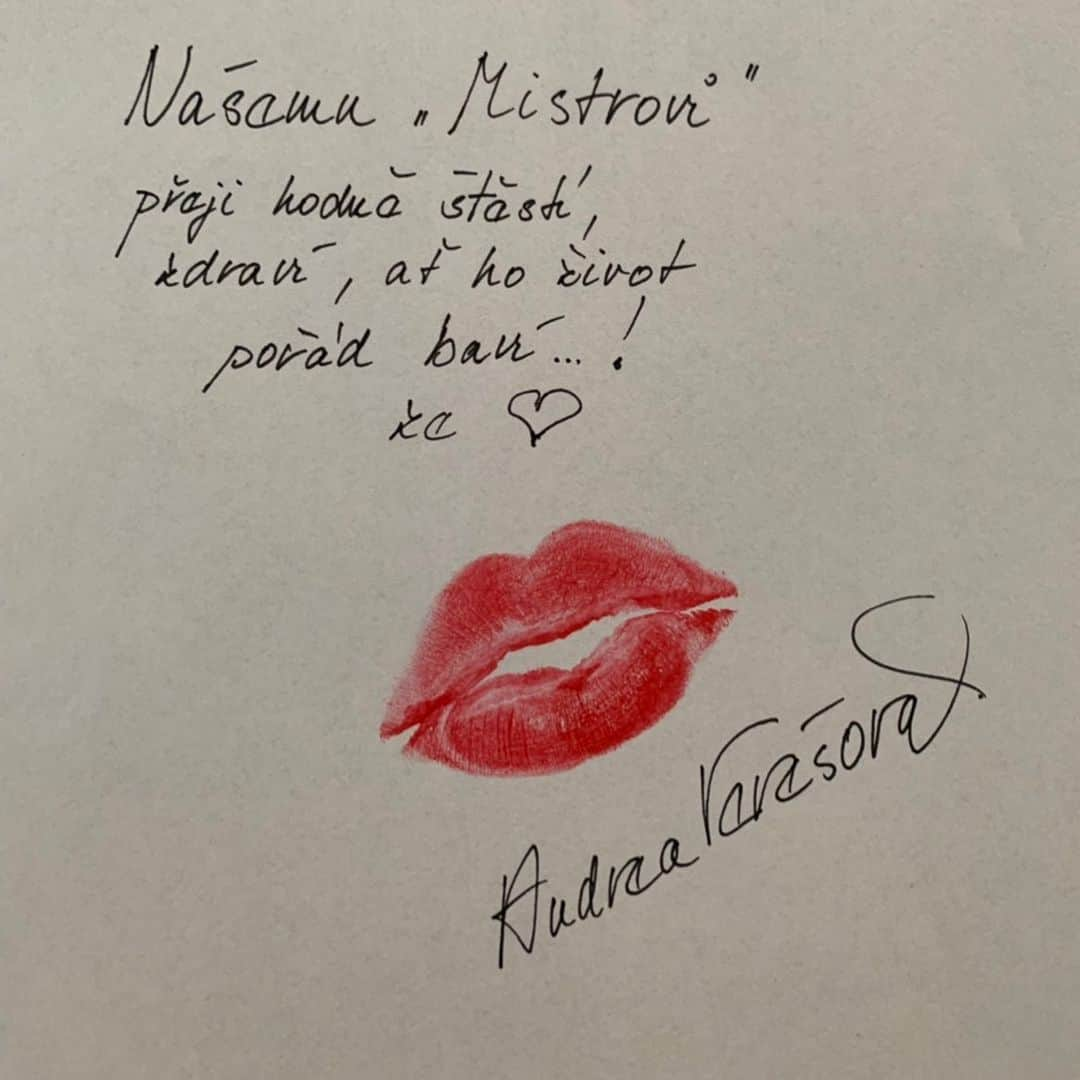 Našemu „Mistrovi"
přeji hodně štěstí,
zdraví, ať ho život
pořád baví...!
ze ♡
Andrea Verešová